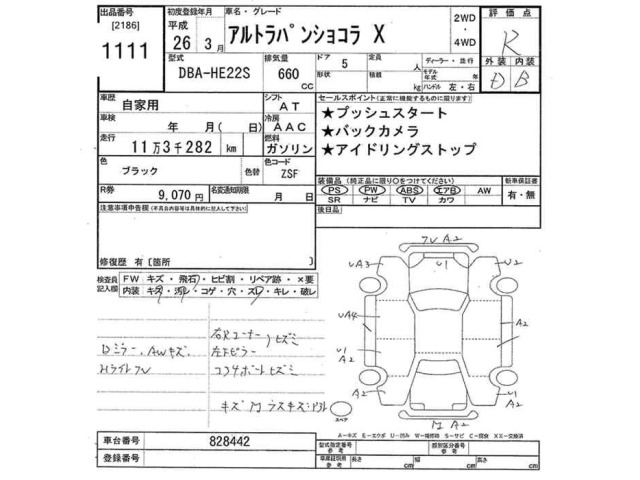 出品番号 初度登録年月 車名・グレード 2WD・4WD 評価点
[2186] 平成
1111 26年 3月 アルトラパンショコラ X R
型式 排気量 ドア 5 定員 人 ディーラー・並行 外装 内装
DBA-HE22S 660 CC 形状 積載 kg モデル年式 年 ハンドル 左・右 D B
車歴 自家用 シフト AT セールスポイント(正常に機能するものに限ります)
車検 年 月( 日) 冷房 AAC ★プッシュスタート
走行 11万3千282 km 燃料 ガソリン ★バックカメラ
★アイドリングストップ
色 ブラック 色替 色コード ZSF
装備品(純正品に限り○をつけてください) 新車保証書
R券 9,070円 名変通知期限 月 日 PS PW ABS エアB AW 有・無
SR ナビ TV カワ
注意事項申告欄(不具合内容等は具体的に記入して下さい) 後日品
修復歴 有[箇所 ]
検査員記入欄 FW キズ・飛石・ヒビ割・リペア跡・×要
内装 キズ・汚レ・コゲ・穴・スレ・キレ・破レ
Dミラー、AWキズ
HライトクV
コアサポートヒズミ
フV A2
UA3 U1 U2
UA4 A2
U1 A2
A2 U1 A2
A2
スペア
A-キズ E-エクボ U-凹み W-補修跡 S-サビ C-腐食 XX-交換済
車台番号 828442 型式指定番号 参考 類別区分番号 参考
登録番号 車庫証明用 参考 長さ cm 幅 cm 高さ cm